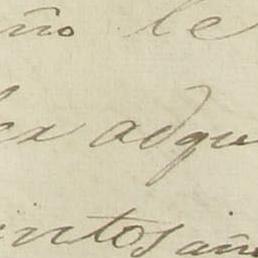 ño le
ex adqu
intos añ